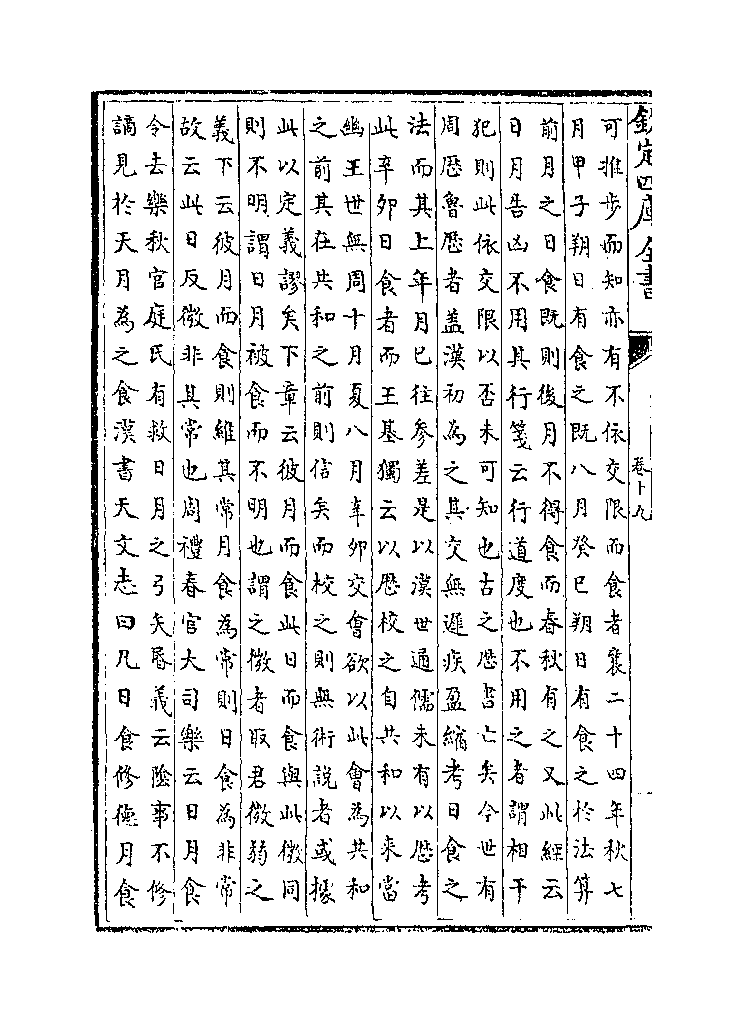 欽定四庫全書
卷十九
可推步而知亦有不依交限而食者襄二十四年秋七
月甲子朔日有食之既八月癸巳朔日有食之於法算
前月之日食既則後月不得食而春秋有之又此經云
日月告凶不用其行箋云行道度也不用之者謂相干
犯則此依交限以否未可知也古之厯書亡矣今世有
周厯魯厯者蓋漢初為之其交無遲疾盈縮考日食之
法而其上年月已往參差是以漢世通儒未有以厯考
此辛卯日食者而王基獨云以厯校之自共和以來當
幽王世無周十月夏八月辛卯交會欲以此會為共和
之前其在共和之前則信矣而校之則無術說者或據
此以定義謬矣下章云彼月而食此日而食與此微同
則不明謂日月被食而不明也謂之微者取君微弱之
義下云彼月而食則維其常月食為常則日食為非常
故云此日反微非其常也周禮春官大司樂云日月食
令去樂秋官庭氏有救日月之弓矢昬義云陰事不修
謫見於天月為之食漢書天文志曰凡日食修德月食